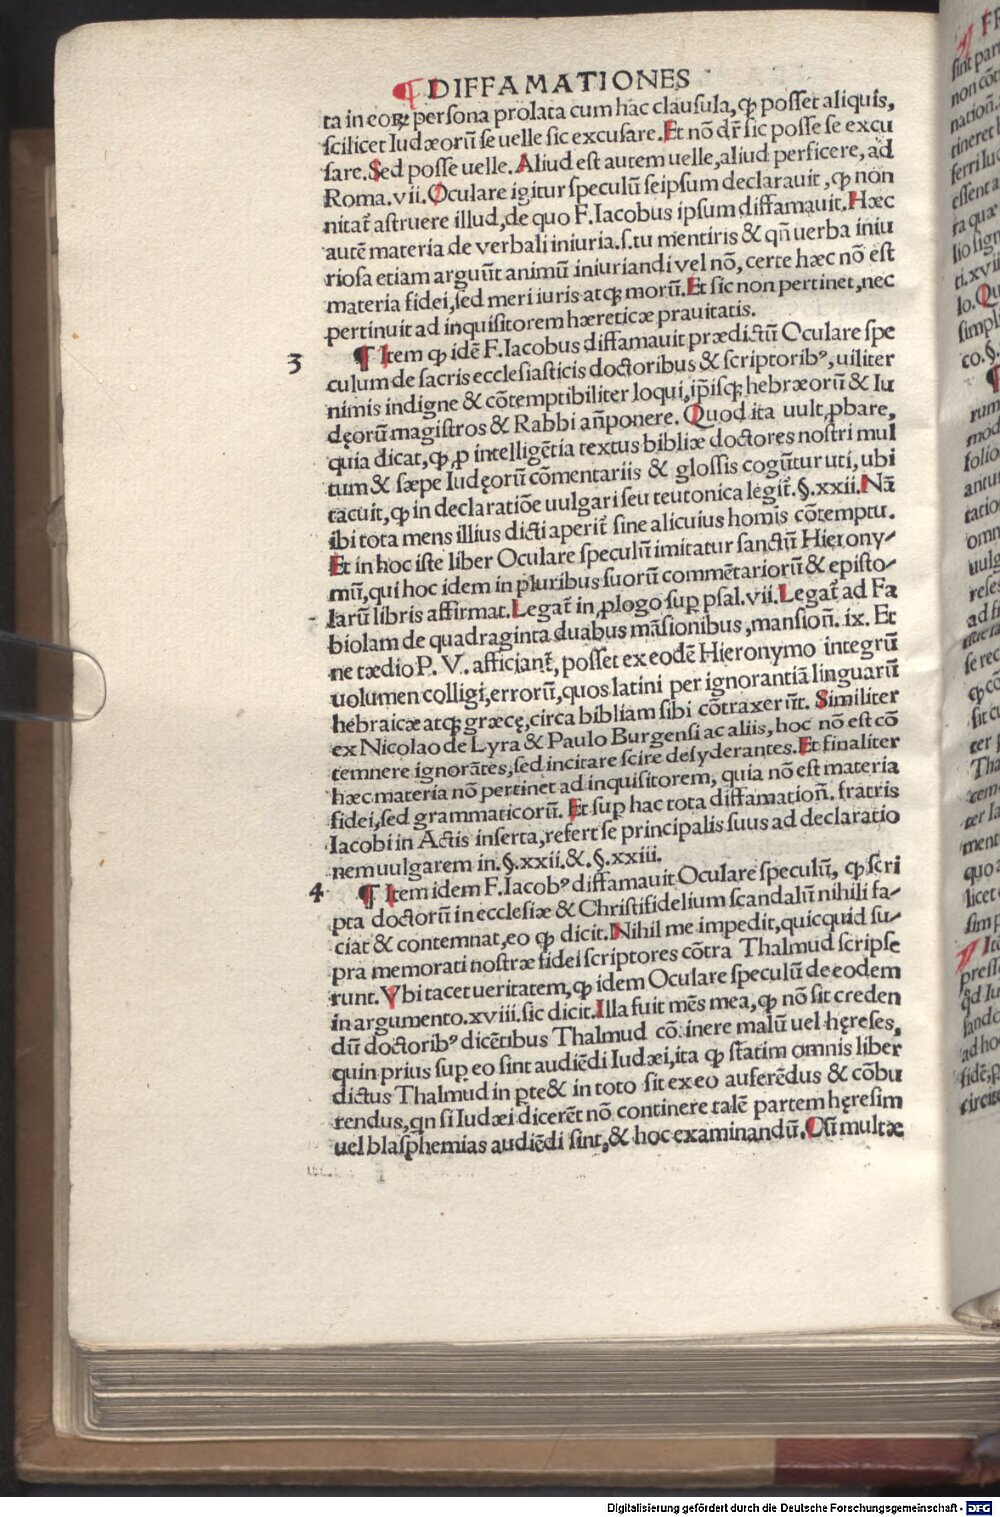 ¶ DIFFAMATIONES
ta in eoꝝ persona prolata cum hac clausula, ꝙ posset aliquis,
scilicet Iudæorũ se uelle sic excusare. Et nõ dr̃ sic posse se excu
sare. Sed posse uelle. Aliud est autem uelle, aliud perficere, ad
Roma. vii. Oculare igitur speculũ seipsum declarauit, ꝙ non
nitat᷑ astruere illud, de quo F. Iacobus ipsum diffamauit. Hæc
autẽ materia de verbali iniuria. s. tu mentiris & qñ uerba iniu
riosa etiam arguũt animũ iniuriandi vel nõ, certe hæc nõ est
materia fidei, sed meri iuris atqꝫ morũ. Et sic non pertinet, nec
pertinuit ad inquisitorem hæreticæ prauitatis.
3 ¶ Item ꝙ idẽ F. Iacobus diffamauit prædictũ Oculare spe
culum de sacris ecclesiasticis doctoribus & scriptoribꝰ, uiliter
nimis indigne & cõtemptibiliter loqui, ip̃isqꝫ hebræorũ & Iu
dęorũ magistros & Rabbi añponere. Quod ita uult ꝓbare,
quia dicat, ꝙ ꝓ intelligẽtia textus bibliæ doctores nostri mul
tum & sæpe Iudęorũ cõmentariis & glossis cogũtur uti, ubi
tacuit, ꝙ in declaratiõe uulgari seu teutonica legit᷑. §. xxii. Nã
ibi tota mens illius dicti aperit᷑ sine alicuius homĩs cõtemptu.
Et in hoc iste liber Oculare speculũ imitatur sanctũ Hierony-
mũ, qui hoc idem in pluribus suorũ commẽtariorũ & episto-
larũ libris affirmat. Legat᷑ in ꝓlogo suꝑ psal. vii. Legat᷑ ad Fa
biolam de quadraginta duabus mãsionibus, mansioñ. ix. Et
ne tædio P. V. afficiant᷑, posset ex eodẽ Hieronymo integrũ
uolumen colligi, errorũ, quos latini per ignorantiã linguarũ
hebraicæ atqꝫ græcę, circa bibliam sibi cõtraxerũt. Similiter
ex Nicolao de Lyra & Paulo Burgensi ac aliis, hoc nõ est cõ
temnere ignorãtes, sed incitare scire desyderantes. Et finaliter
hæc materia nõ pertinet ad inquisitorem, quia nõ est materia
fidei, sed grammaticorũ. Et suꝑ hac tota diffamatioñ. fratris
Iacobi in Actis inserta, refert se principalis suus ad declaratio
nem uulgarem in. §. xxii. &. §. xxiii.
4 ¶ Item idem F. Iacobꝰ diffamauit Oculare speculũ, ꝙ scri
pta doctorũ in ecclesiæ & Christifidelium scandalũ nihili fa-
ciat & contemnat, eo ꝙ dicit. Nihil me impedit, quicquid su-
pra memorati nostræ fidei scriptores cõtra Thalmud scripse
runt. Vbi tacet ueritatem, ꝙ idem Oculare speculũ de eodem
in argumento. xviii. sic dicit. Illa fuit mẽs mea, ꝙ nõ sit creden
dũ doctoribꝰ dicẽtibus Thalmud cõtinere malũ uel hęreses,
quin prius suꝑ eo sint audiẽdi Iudæi, ita ꝙ statim omnis liber
dictus Thalmud in ꝑte & in toto sit ex eo auferẽdus & cõbu
rendus, qn si Iudæi dicerẽt nõ continere talẽ partem hęresim
uel blasphemias audiẽdi sint, & hoc examinandũ. Cũ multæ
Digitalisierung gefördert durch die Deutsche Forschungsgemeinschaft - DFG